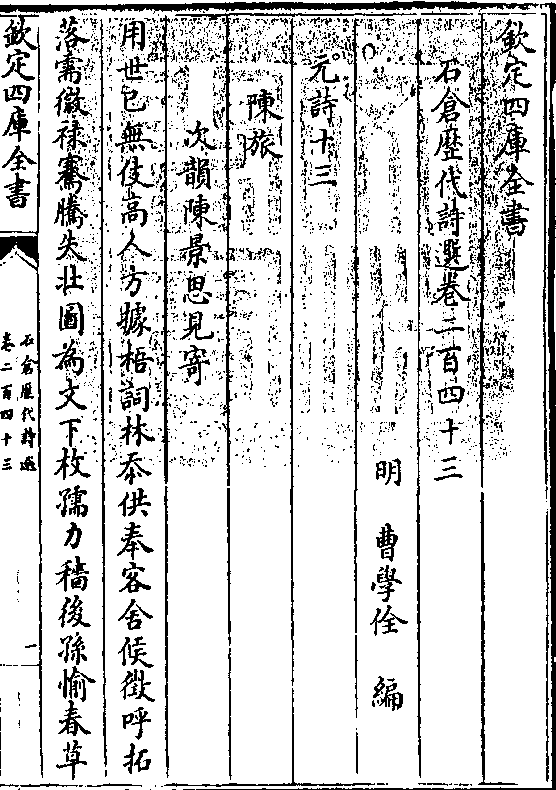 欽定四庫全書
石倉歷代詩選卷二百四十三
明 曹學佺 編
元詩十三
陳旅
次韻陳景思見寄
用世已無伎嵩人方據梧詞林忝供奉客舍候徵呼拓
落需微祿騫騰失壯圖為文下枚孺力穡後孫愉春草
欽定四庫全書
石倉歷代詩選
卷二百四十三
一